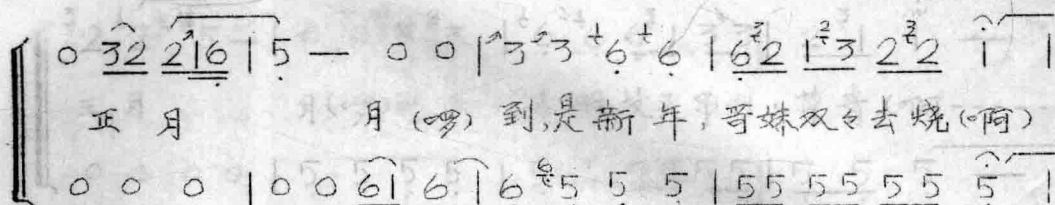 0 32 216 | 5 — 0 0 | 3 3 6 6 | 62 13 22 1 |
正月 月(啰)到,是新年,哥妹双々去烧(啊)
0 0 0 | 0 0 61 6 | 6 5 5 5 | 55 55 55 5 |